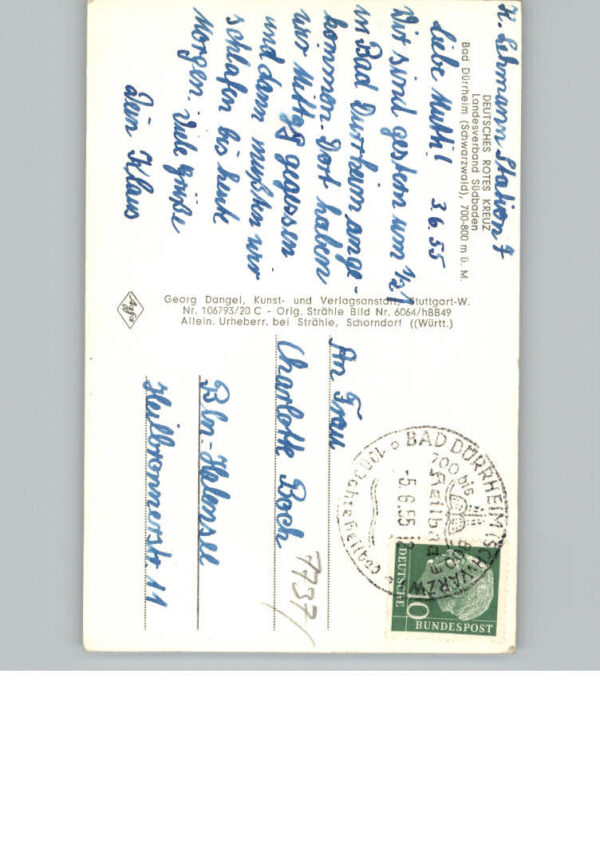 K. Lehmann Station 7
DEUTSCHES ROTES KREUZ
Landesverband Südbaden
Bad Dürrheim (Schwarzwald), 700-800 m ü. M.
Liebe Mutti! 3.6.55
Wir sind gestern um 1/21
in Bad Dürrheim ange-
kommen. Dort haben
wir Mittag gegessen
und dann mußten wir
schlafen bis heute
Morgen. Viele Grüße
Dein Klaus
Georg Dangel, Kunst- und Verlagsanstalt, Stuttgart-W.
Nr. 106793/20 C - Orig. Strähle Bild Nr. 6064/hBB49
Allein. Urheberr. bei Strähle, Schorndorf ((Württ.)
Agfa
BAD DÜRRHEIM (SCHWARZW
700 bis
Heilbad
-5.6.55
10
DEUTSCHE
BUNDESPOST
An Frau
Charlotte Boch
7737/
Bln-Halensee
Heilbronnerstr. 11